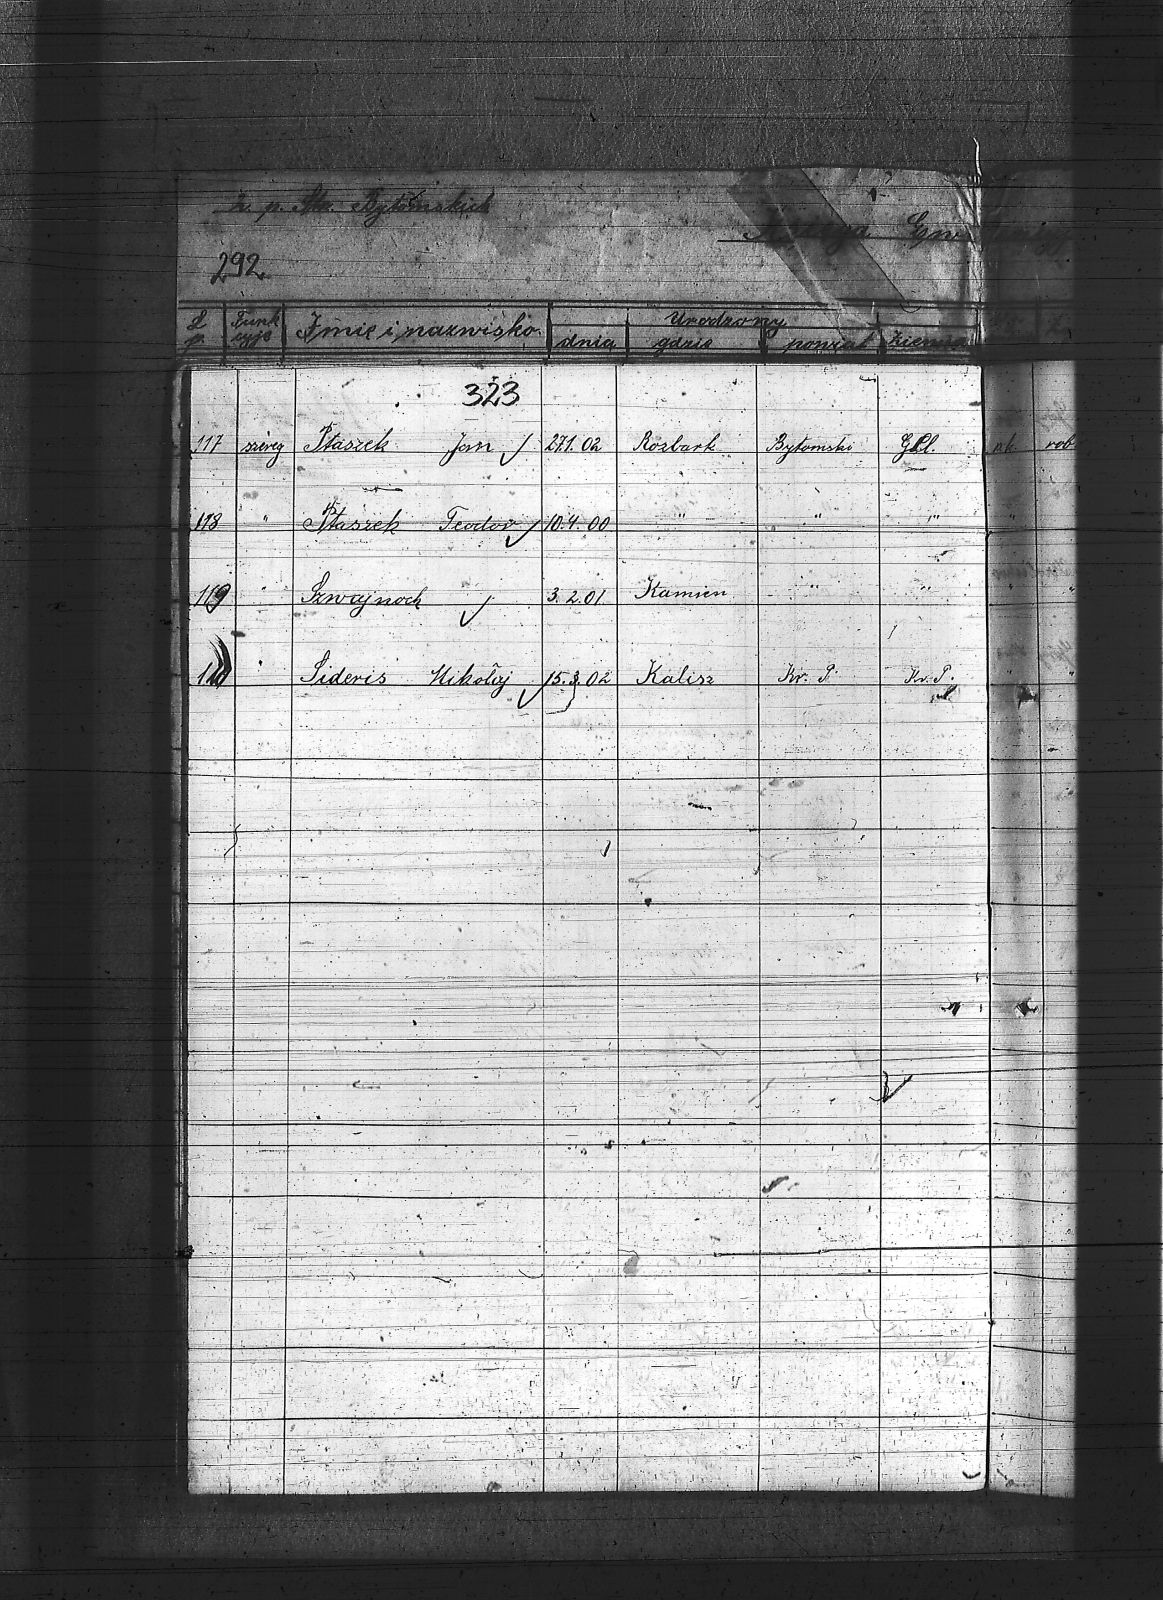 2. p. Strz. Bytomskich
292
L p. Funk cyje Imię i nazwisko Urodzony
dnia gdzie powiat ziemia
323
117 szereg Ptaszek Jan 27.1.02 Rozbark Bytomsko G.Śl. rob
118 " Ptaszek Teodor 10.4.00 " " "
119 " Szwajnoch 3.2.01 Kamien " "
" Sideris Mikołaj 15.3.02 Kalisz Kr. P. Kr. P.